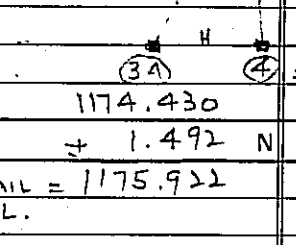 H
3A 4
1174.430
+ 1.492 N
= 1175.922
L.